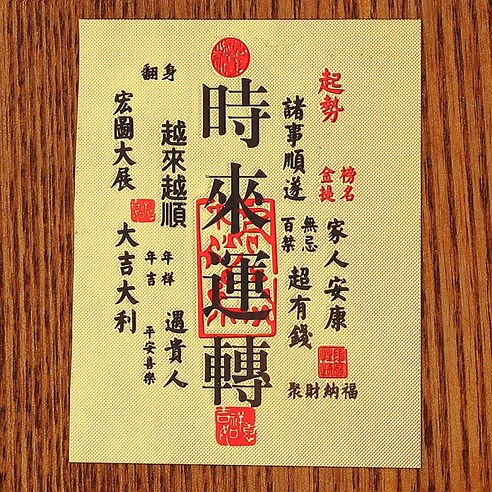 起勢
榜名
金提
家人安康
諸事順遂
無忌
百禁
超有錢
聚財納福
時來運轉
翻身
越來越順
年祥
年吉
遇貴人
宏圖大展
大吉大利
平安喜樂